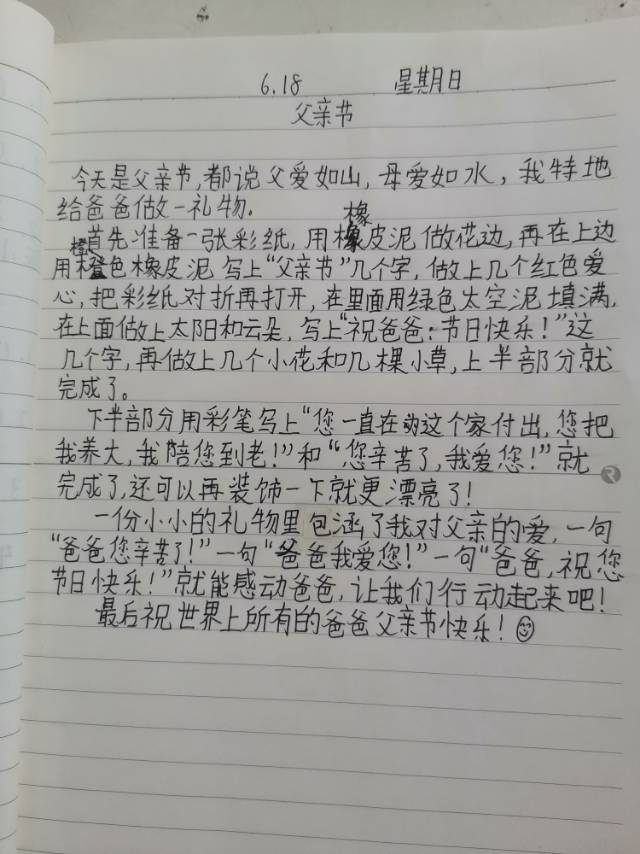 6.18 星期日
父亲节
今天是父亲节,都说父爱如山,母爱如水,我特地
给爸爸做一礼物.
首先准备一张彩纸,用橡皮泥做花边,再在上边
用橙色橡皮泥写上“父亲节”几个字,做上几个红色爱
心,把彩纸对折再打开,在里面用绿色太空泥填满,
在上面做上太阳和云朵,写上“祝爸爸:节日快乐!”这
几个字,再做上几个小花和几棵小草,上半部分就
完成了。
下半部分用彩笔写上“您一直在为这个家付出,您把
我养大,我陪您到老!”和“您辛苦了,我爱您!”就
完成了,还可以再装饰一下就更漂亮了!
一份小小的礼物里包涵了我对父亲的爱,一句
“爸爸您辛苦了!”一句“爸爸我爱您!”一句“爸爸,祝您
节日快乐!”就能感动爸爸,让我们行动起来吧!
最后祝世界上所有的爸爸父亲节快乐!